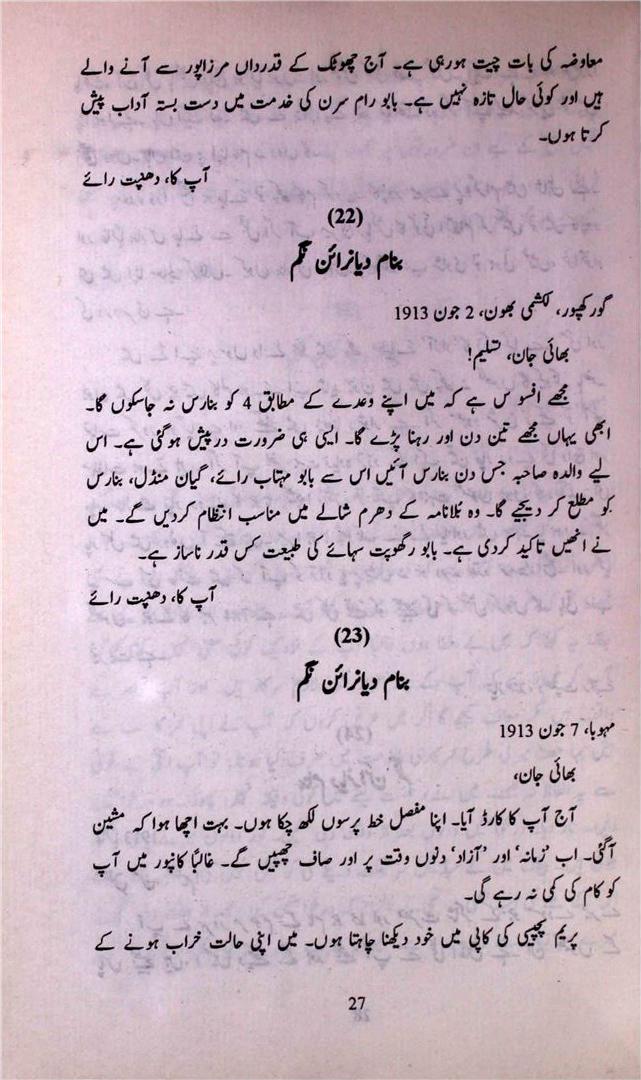 معاوضہ کی بات چیت ہورہی ہے۔ آج چھوٹک کے قدرداں مرزاپور سے آنے والے
ہیں اور کوئی حال تازہ نہیں ہے۔ بابو رام سرن کی خدمت میں دست بستہ آداب پیش
کرتا ہوں۔
آپ کا، دھنپت رائے
(22)
بنام دیانرائن نگم
گورکھپور، لکشمی بھون، 2 جون 1913
بھائی جان، تسلیم!
مجھے افسوس ہے کہ میں اپنے وعدے کے مطابق 4 کو بنارس نہ جاسکوں گا۔
ابھی یہاں مجھے تین دن اور رہنا پڑے گا۔ ایسی ہی ضرورت درپیش ہوگئی ہے۔ اس
لیے والدہ صاحبہ جس دن بنارس آئیں اس سے بابو مہتاب رائے، گیان منڈل، بنارس
کو مطلع کر دیجیے گا۔ وہ بُلانامہ کے دھرم شالے میں مناسب انتظام کردیں گے۔ میں
نے انھیں تاکید کردی ہے۔ بابو رگھوپت سہائے کی طبیعت کس قدر ناساز ہے۔
آپ کا، دھنپت رائے
(23)
بنام دیانرائن نگم
مہوبا، 7 جون 1913
بھائی جان،
آج آپ کا کارڈ آیا۔ اپنا مفصل خط پرسوں لکھ چکا ہوں۔ بہت اچھا ہوا کہ مشین
آگئی۔ اب ’زمانہ‘ اور ’آزاد‘ دنوں وقت پر اور صاف چھپیں گے۔ غالباً کانپور میں آپ
کو کام کی کمی نہ رہے گی۔
پریم پچیسی کی کاپی میں خود دیکھنا چاہتا ہوں۔ میں اپنی حالت خراب ہونے کے
27